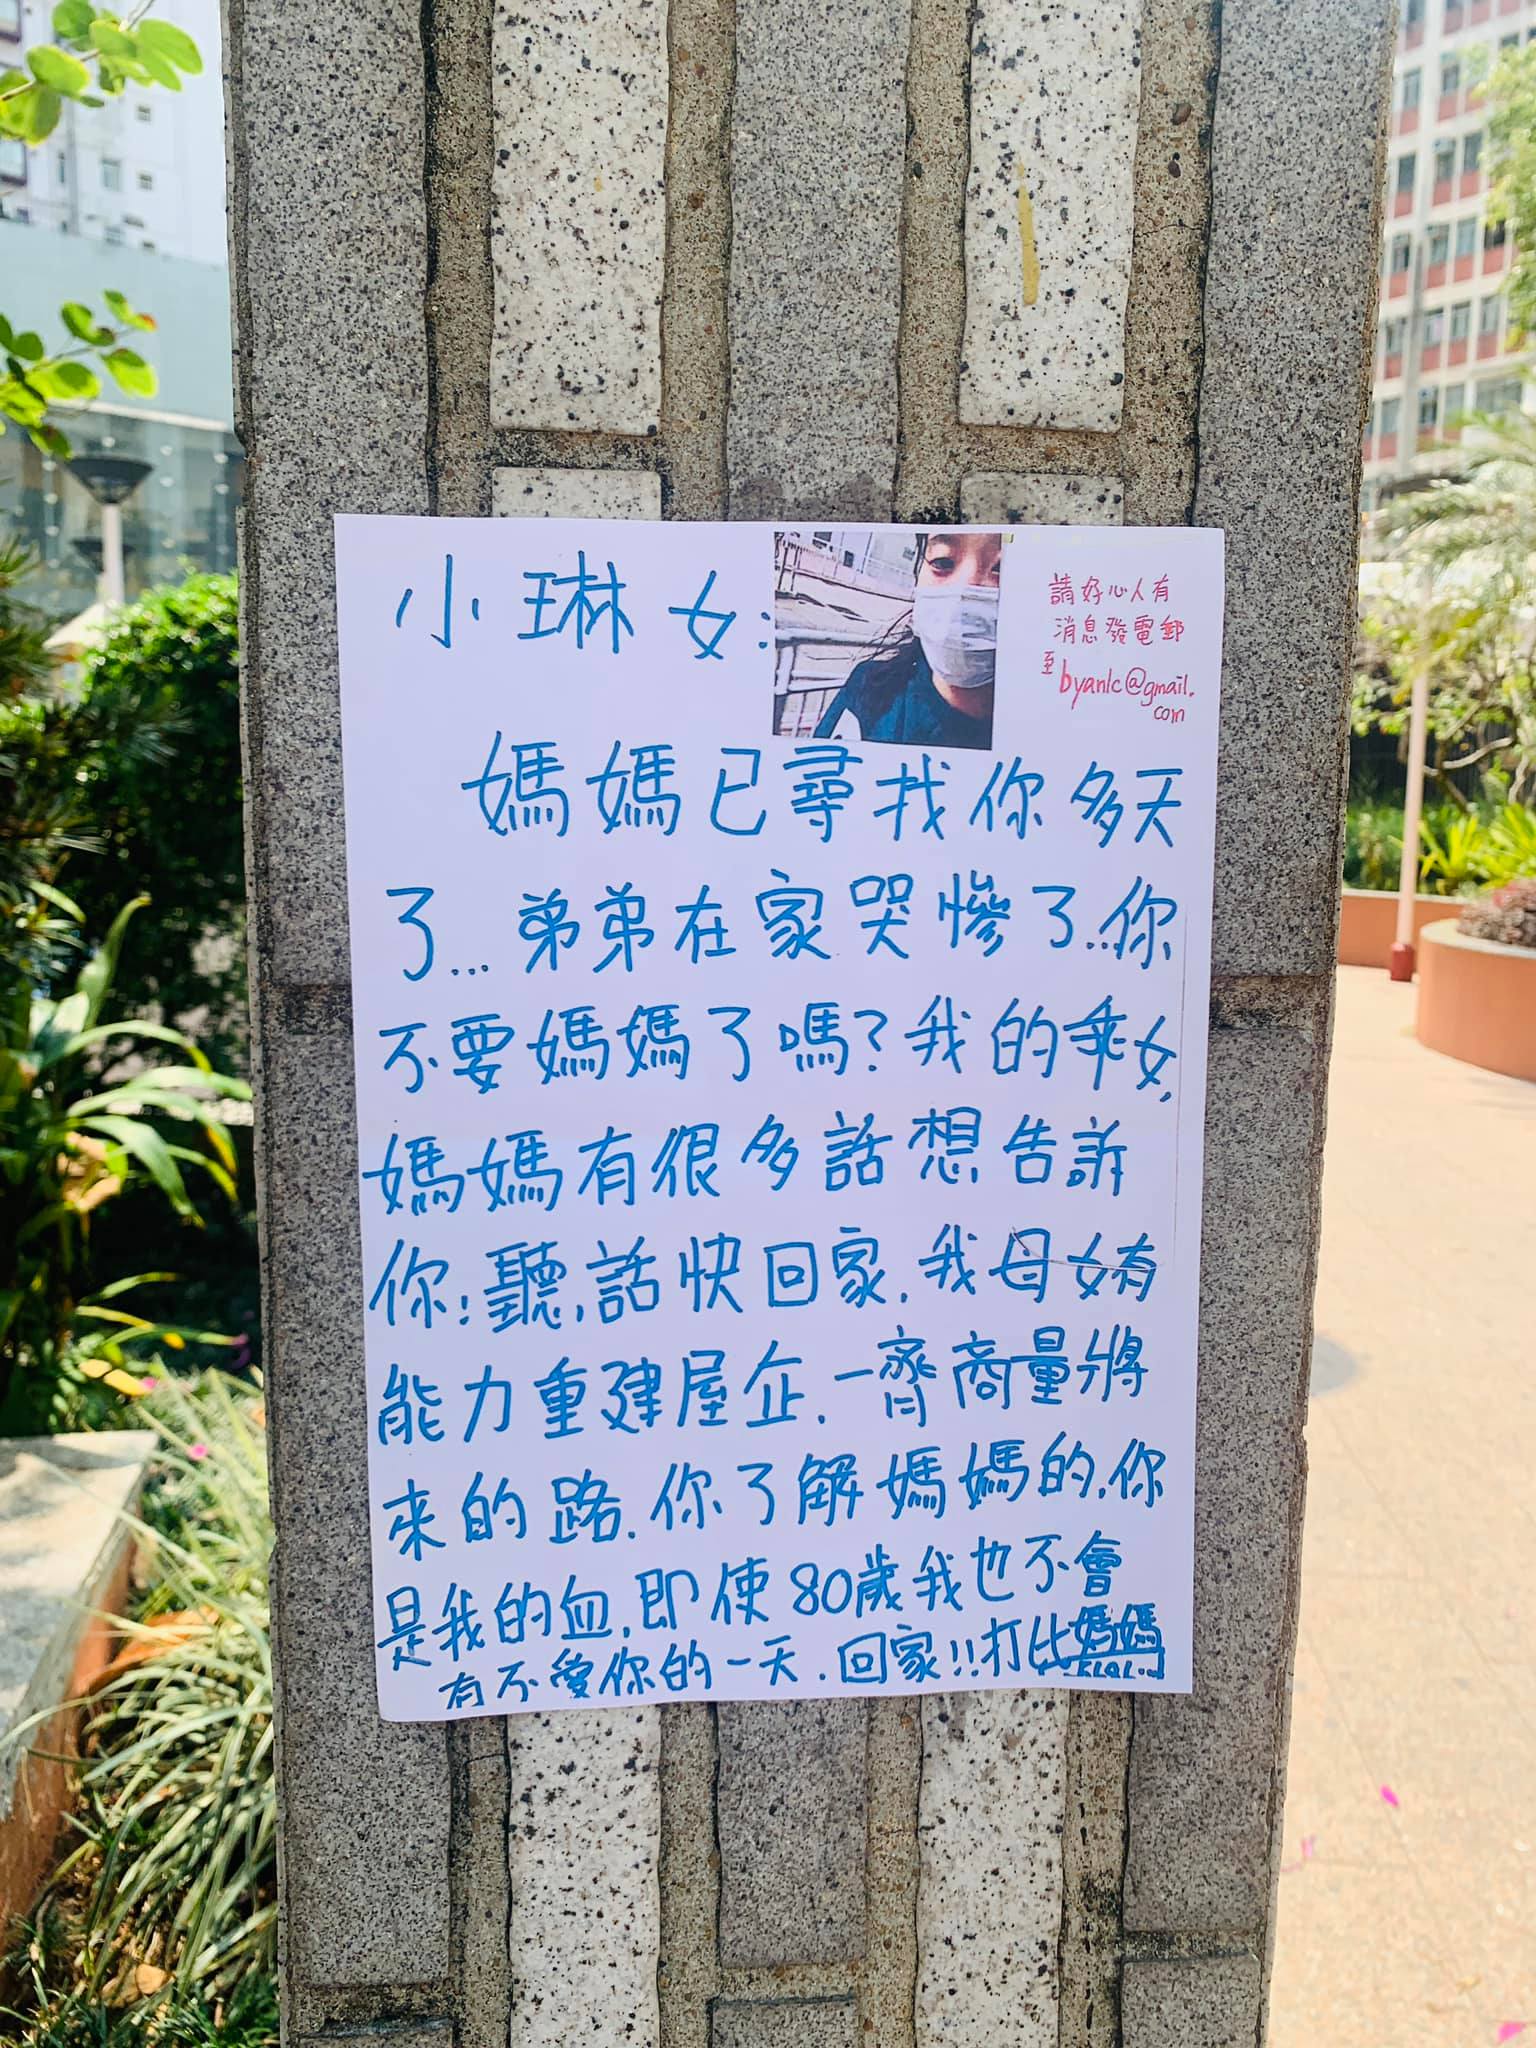 小琳女:
請好心人有
消息發電郵
至 byanlc@gmail.
com
媽媽已尋找你多天
了...弟弟在家哭慘了..你
不要媽媽了嗎?我的乖女,
媽媽有很多話想告訴
你!聽話快回家.我母女有
能力重建屋企.一齊商量將
來的路.你了解媽媽的.你
是我的血.即使80歲我也不會
有不愛你的一天.回家!!打比媽媽